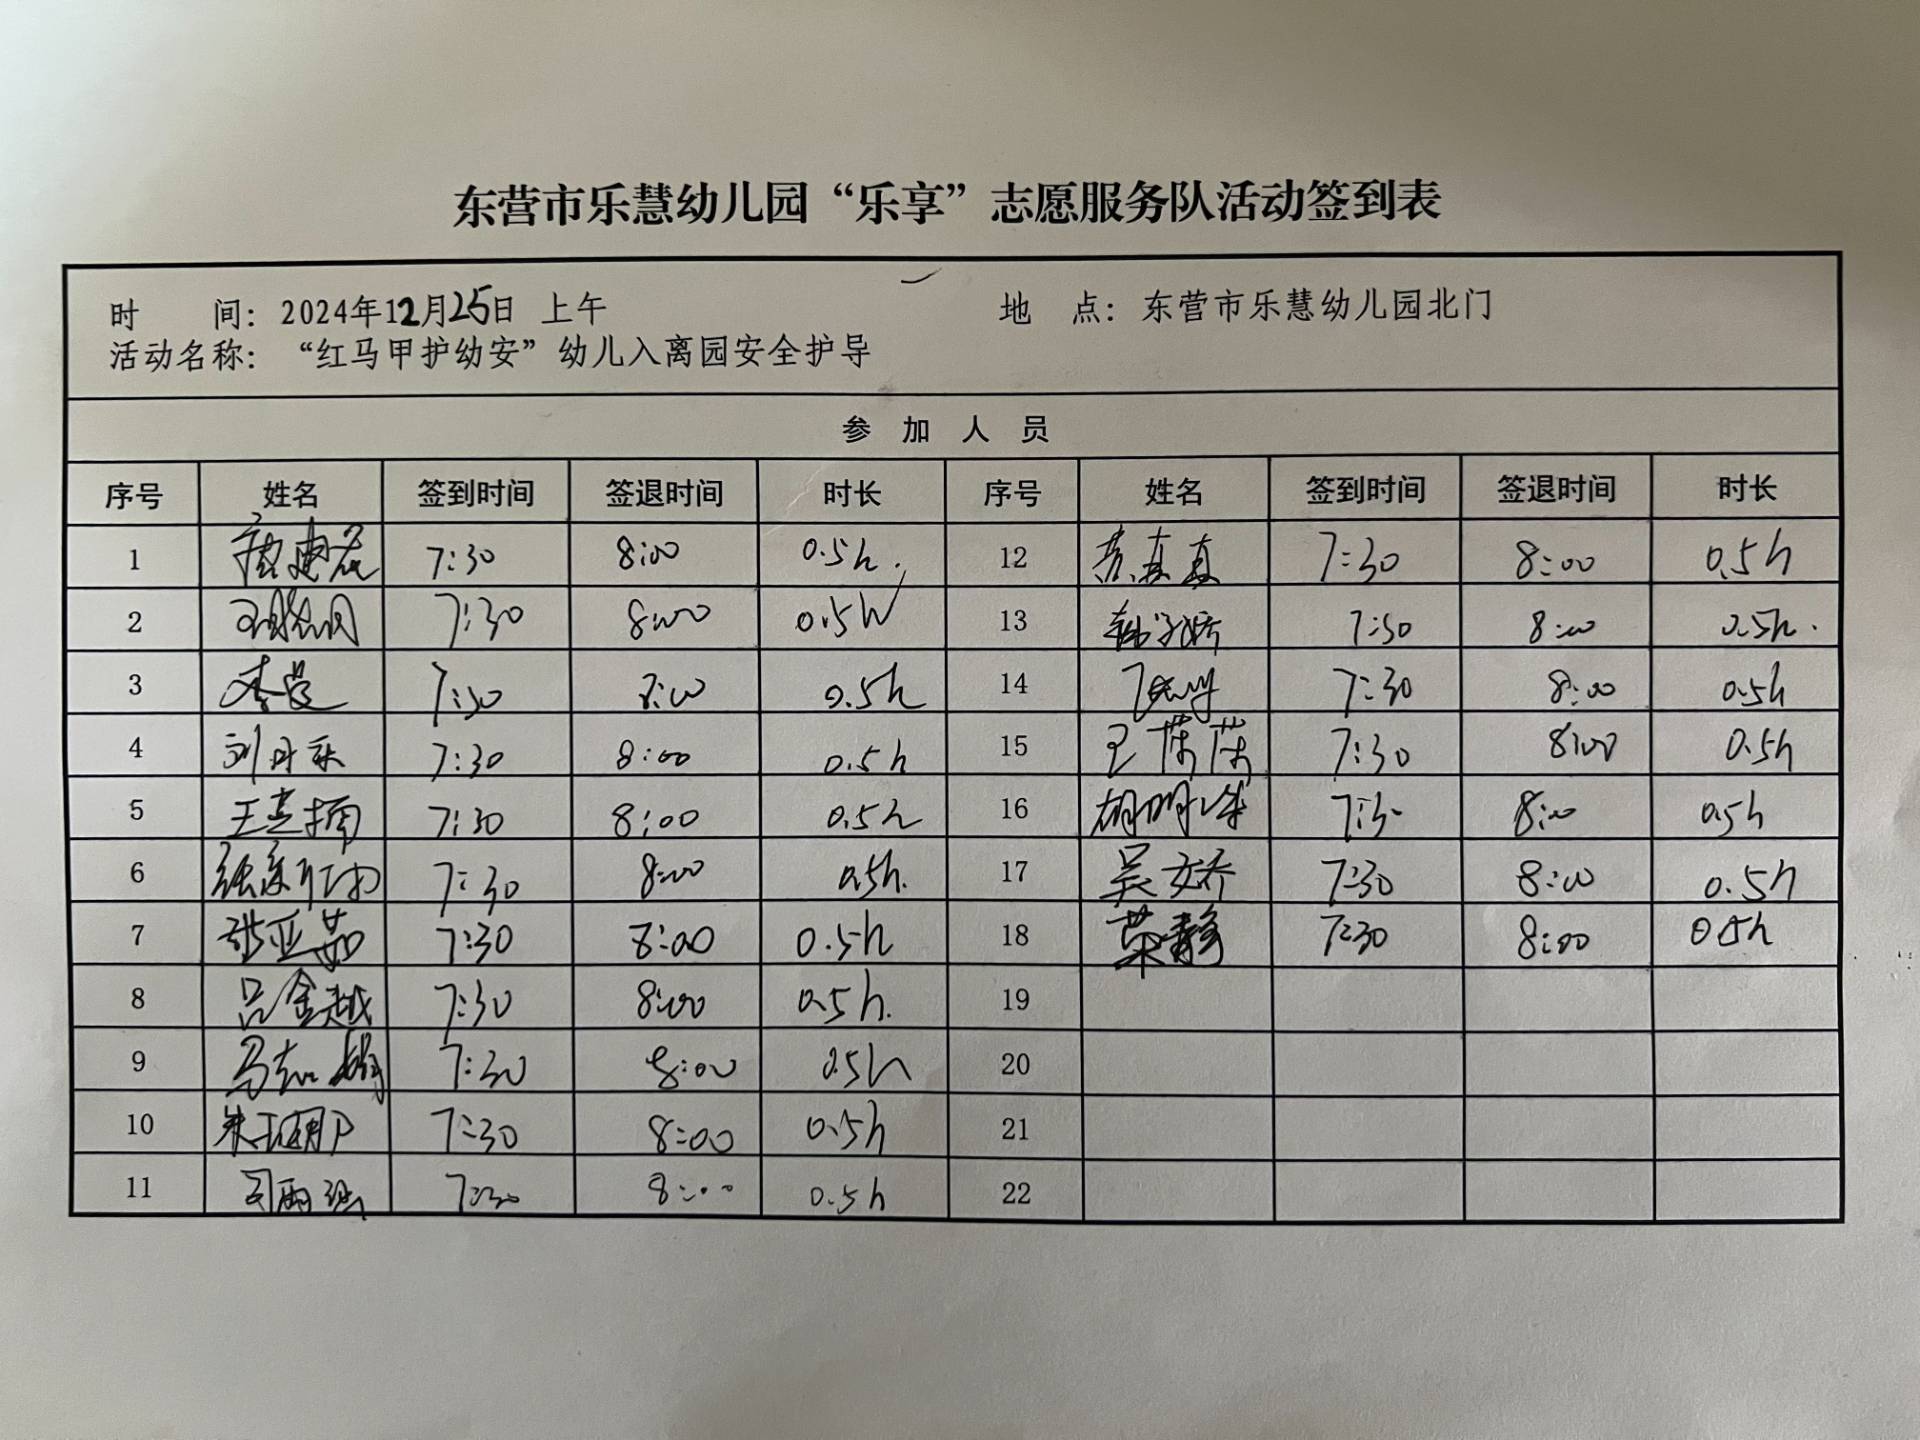 东营市乐慧幼儿园“乐享”志愿服务队活动签到表
时 间：2024年12月25日 上午 地 点：东营市乐慧幼儿园北门
活动名称：“红马甲护幼安”幼儿入离园安全护导
参 加 人 员
序号 姓名 签到时间 签退时间 时长 序号 姓名 签到时间 签退时间 时长
1 7:30 8:00 0.5h. 12 苏真真 7:30 8:00 0.5h
2 7:30 8:00 0.5h 13 7:30 8:00 0.5h.
3 7:30 8:00 0.5h 14 7:30 8:00 0.5h
4 7:30 8:00 0.5h 15 王萍萍 7:30 8:00 0.5h
5 7:30 8:00 0.5h 16 7:30 8:00 0.5h
6 7:30 8:00 0.5h. 17 吴文乔 7:30 8:00 0.5h
7 张亚茹 7:30 8:00 0.5h 18 荣静 7:30 8:00 0.5h
8 吕金越 7:30 8:00 0.5h. 19
9 7:30 8:00 0.5h 20
10 7:30 8:00 0.5h 21
11 7:30 8:00 0.5h 22